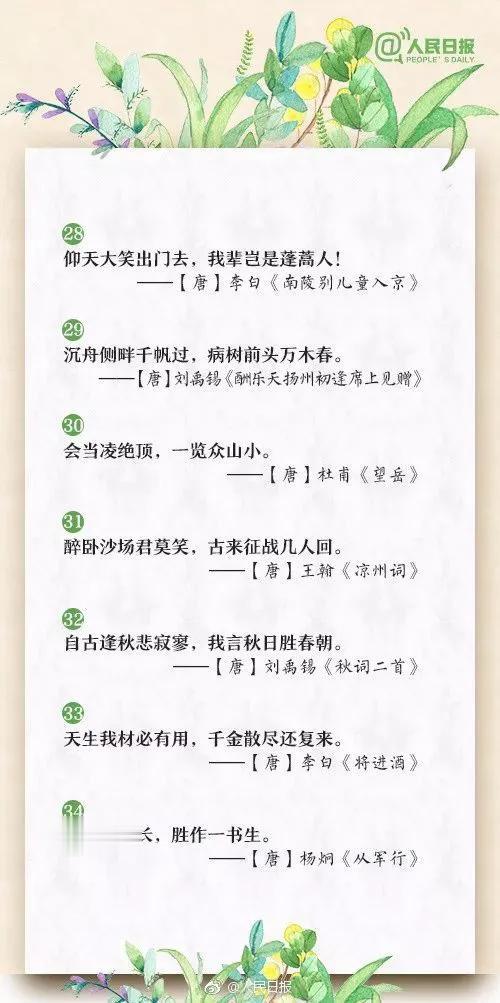 @人民日报
PEOPLE'S DAILY
28
仰天大笑出门去，我辈岂是蓬蒿人！
——【唐】李白《南陵别儿童入京》
29
沉舟侧畔千帆过，病树前头万木春。
——【唐】刘禹锡《酬乐天扬州初逢席上见赠》
30
会当凌绝顶，一览众山小。
——【唐】杜甫《望岳》
31
醉卧沙场君莫笑，古来征战几人回。
——【唐】王翰《凉州词》
32
自古逢秋悲寂寥，我言秋日胜春朝。
——【唐】刘禹锡《秋词二首》
33
天生我材必有用，千金散尽还复来。
——【唐】李白《将进酒》
34
，胜作一书生。
——【唐】杨炯《从军行》
@人民日报